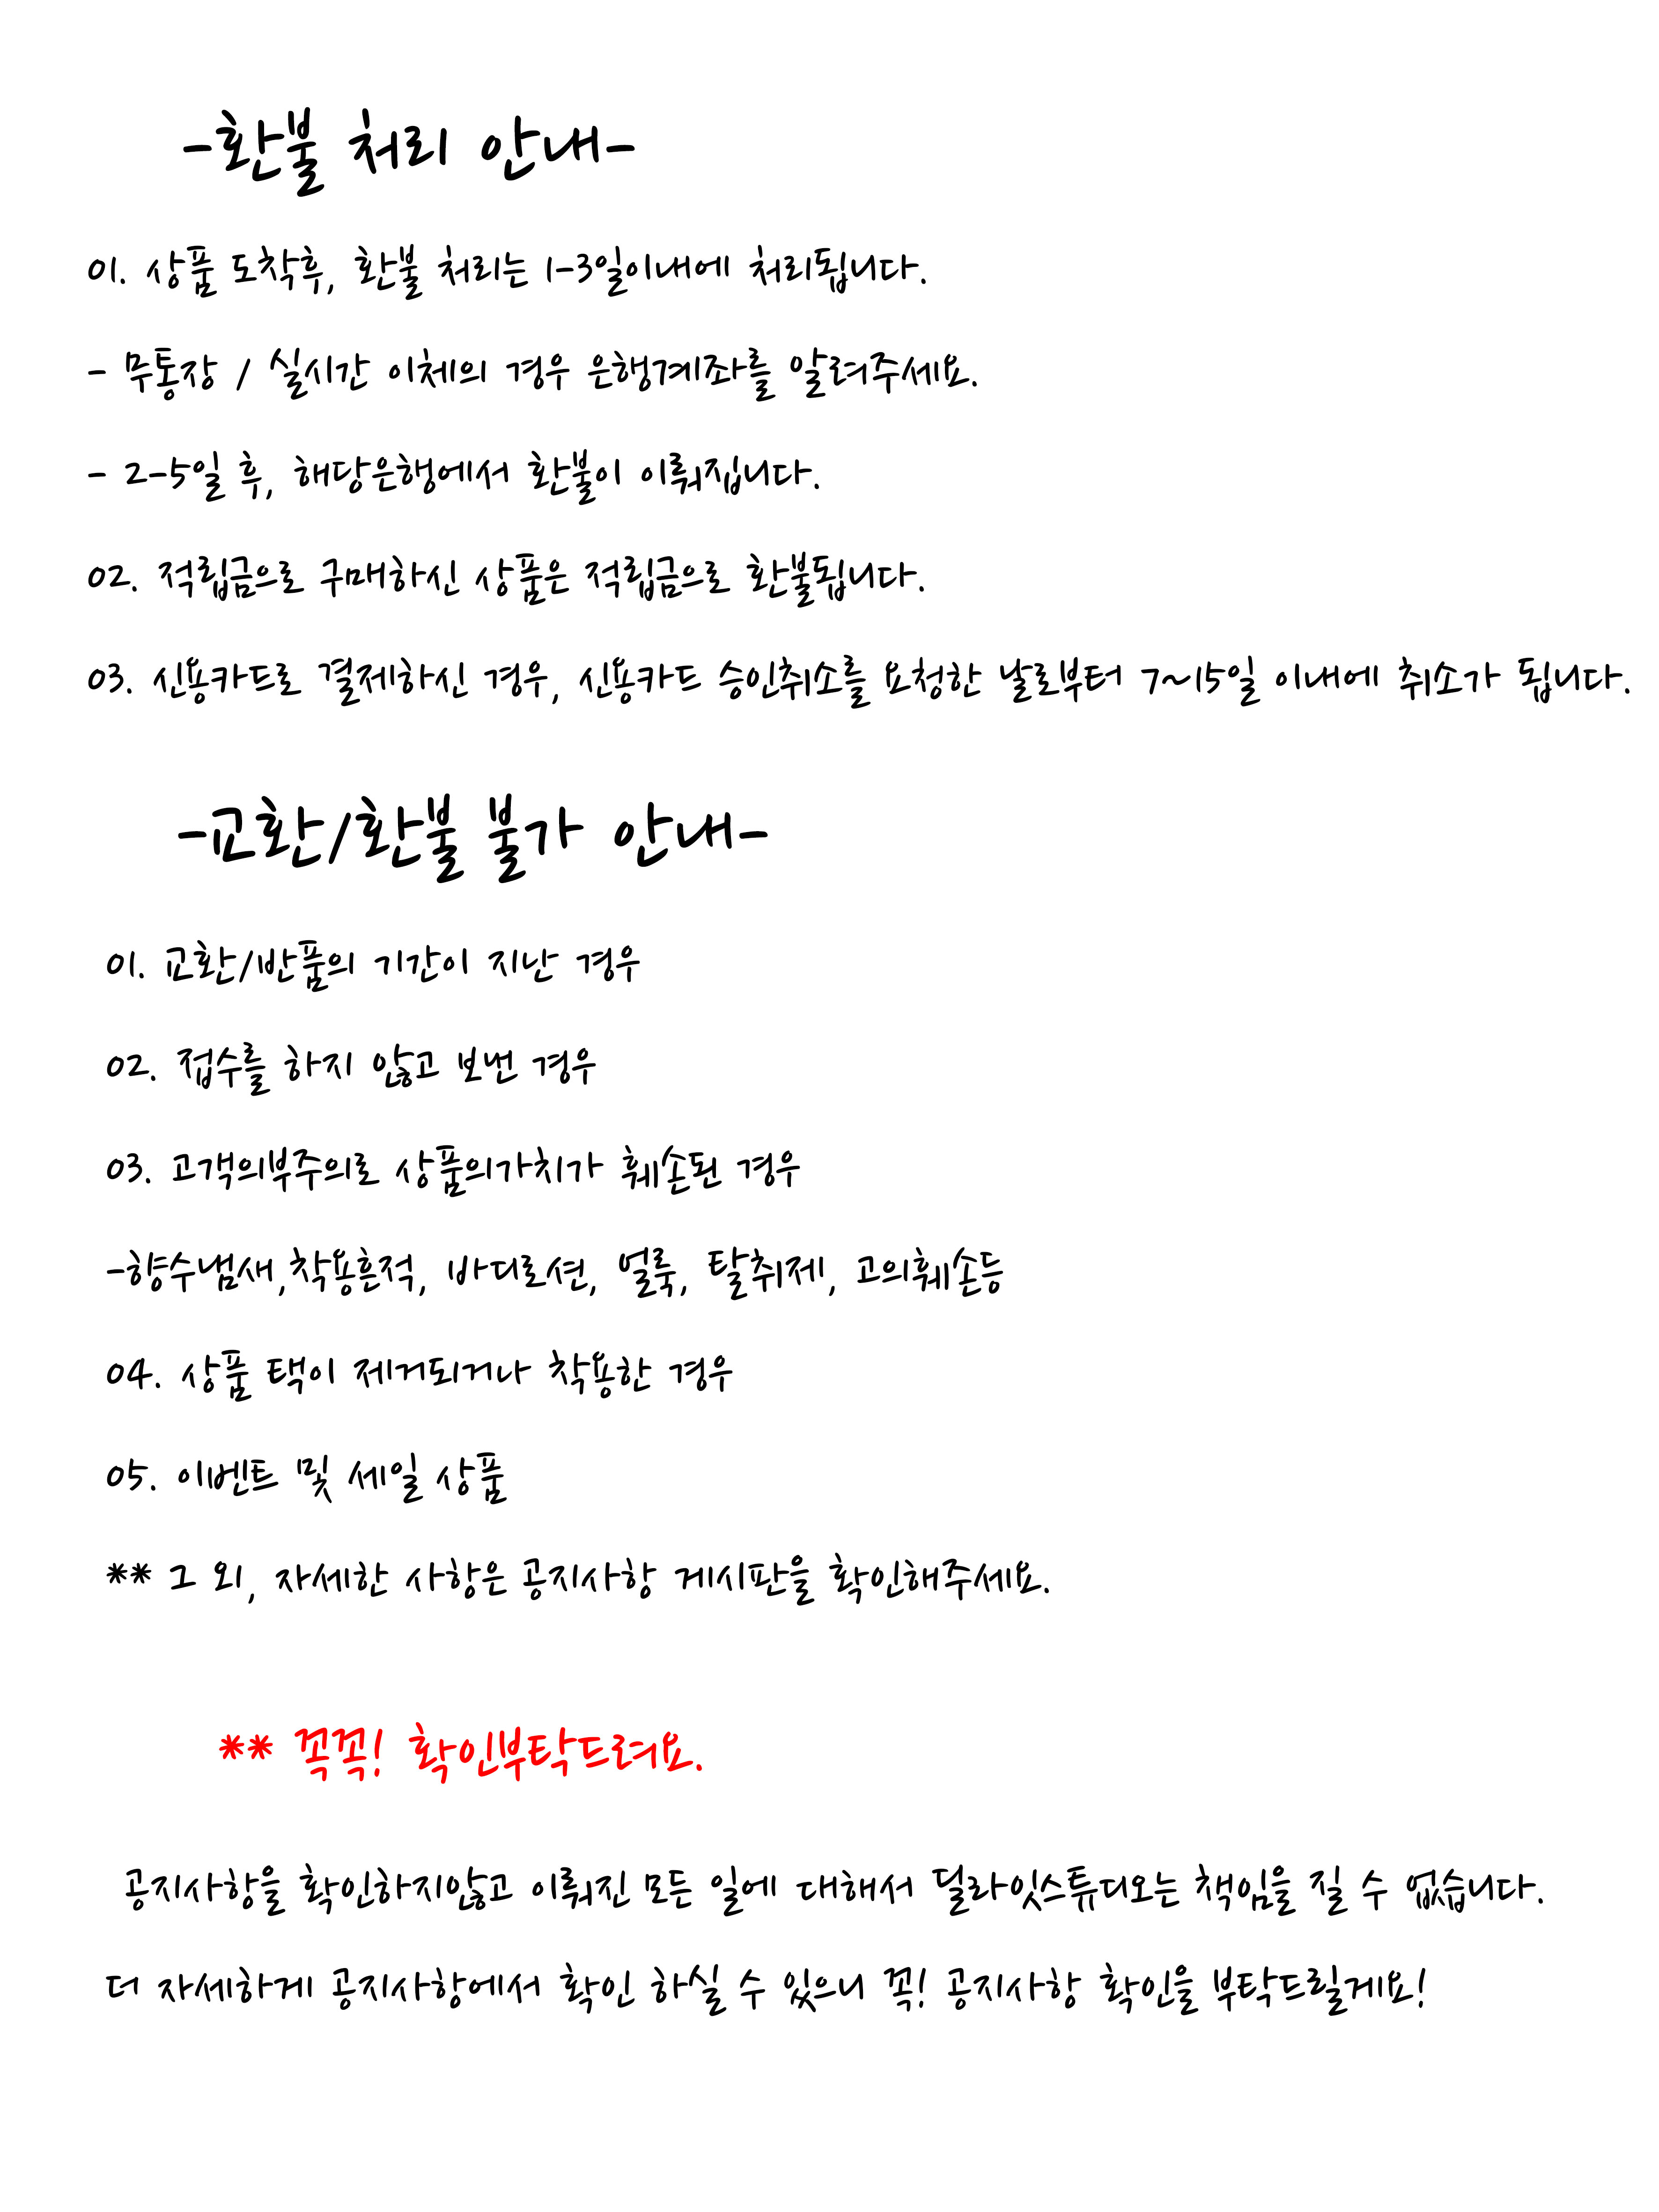 -환불 처리 안내-
01. 상품 도착후, 환불 처리는 1-3일이내에 처리됩니다.
- 무통장 / 실시간 이체의 경우 은행계좌를 알려주세요.
- 2-5일 후, 해당은행에서 환불이 이뤄집니다.
02. 적립금으로 구매하신 상품은 적립금으로 환불됩니다.
03. 신용카드로 결제하신 경우, 신용카드 승인취소를 요청한 날로부터 7~15일 이내에 취소가 됩니다.
-교환/환불 불가 안내-
01. 교환/반품의 기간이 지난 경우
02. 접수를 하지 않고 보낸 경우
03. 고객의부주의로 상품의가치가 훼손된 경우
-향수냄새,착용흔적, 바디로션, 얼룩, 탈취제, 고의훼손등
04. 상품 택이 제거되거나 착용한 경우
05. 이벤트 및 세일 상품
** 그 외, 자세한 사항은 공지사항 게시판을 확인해주세요.
** 꼭꼭! 확인부탁드려요.
공지사항을 확인하지않고 이뤄진 모든 일에 대해서 딜라잇스튜디오는 책임을 질 수 없습니다.
더 자세하게 공지사항에서 확인 하실 수 있으니 꼭! 공지사항 확인을 부탁드릴게요!